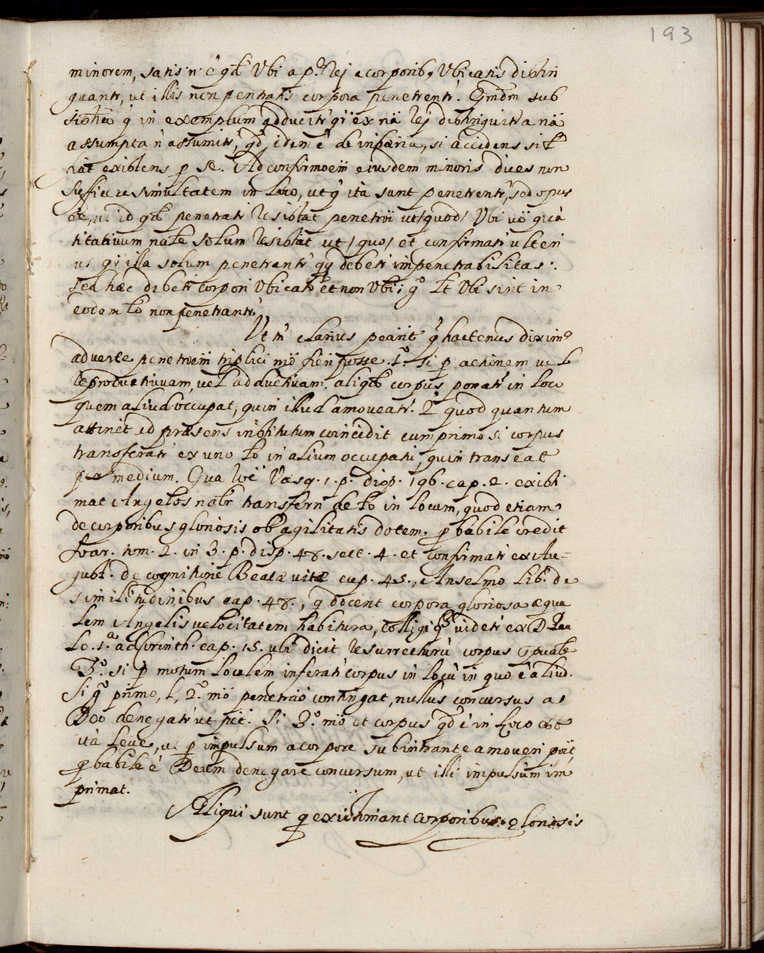 193
minorem, satis n̄ ē qd Vbi a p.te rej a corporibq Vbicatis distin
guant', ut illis non penetratis corpora penetrent'.
assumpta n̄ assumit', qd idem ē de inpaenia, si accidens sit
existens p se. Ad confirmōem eiusdem minoris dices non
sufficere simultatem in loco, ut q ita sunt penetrent', sed opus
ut id qd penetrat' resistat penetrōi ut quod; Vbi vō quā
titativum nāle solum resistat ut quo; et confirmat' ulteri
us qi illa solum penetrant' debet' impenetrabilitas.
Sed haec debet' corpori Vbicato et non Vbi; g.o lt Vbi sint in
eodem lō non penetrant'.
Ut tn̄ clarius peant q hactenus dixim9
adverte penetrōem triplici mō fieri posse. 1.o si p actionem vel
reproductivam, vel adductivam aliqd corpus ponat' in loco
quem aliud occupat, quin illud amoveat'. 2.o quod quantum
attinet ad praesens institutum coincidit cum primo si corpus
transferat' ex uno lō in alium occupatū quin transeat
p medium. Qua Vasq. 1. p. disp. 196. cap. 2. existi
mat Angelos nālr transferri de lō in locum, quod etiam
de corporibus gloriosis ob agilitatis dotem p babile credit
Soar. tom. 2. in 3. p. disp. 48. sect. 4. et confirmat' ex Au=
gust. de cognitione Beatae vitae cap. 45., Anselmo lib. de
similitudinibus cap. 48., q docent corpora gloriosa aequa
lem Angelis velocitatem habitura, colligi q videt' ex D. Pau
lo. 1.a ad Corinth. cap. 15. ubi dicit resurrecturū corpus spuale
3.o si p motum localem inferat' corpus in locū in quo ē aliud.
Si g.o primo, l, 2.o mō penetrāo contingat, nullus concursus a
Deo denegat' ut fiet. Si 3.o mō et corpus qd ē in loco est
ita leve, ut p impulsum a corpore subintrante amoveri poīt
p babile ē Deum denegare concursum, ut illi impulsum im
primat.
Aliqui sunt q existimant corporibus gloriosis